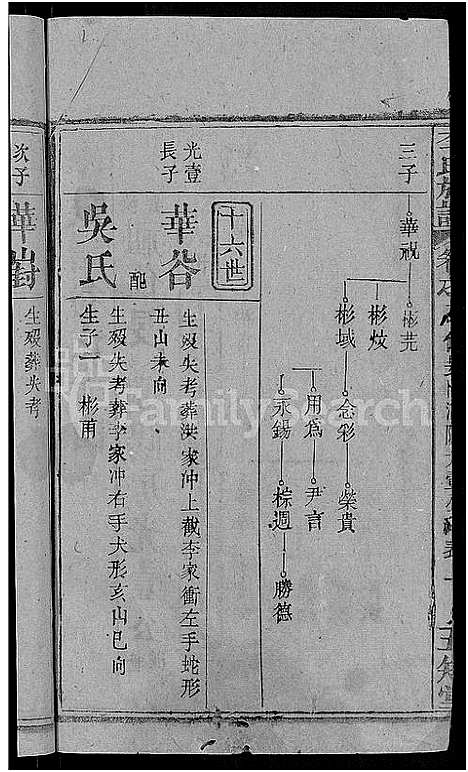 三子 華祝 彬芫
彬烄
彬域 念彩 榮貴
用為 尹言
永錫 棕週 勝德
十六世
光壹長子
華谷
生殁失考葬洪家冲上截李家衝左手蛇形
丑山未向
配吳氏
生殁失考葬李家冲右手犬形亥山巳向
生子一 彬甫
次子
生殁葬失考
氏族譜
FamilySearch